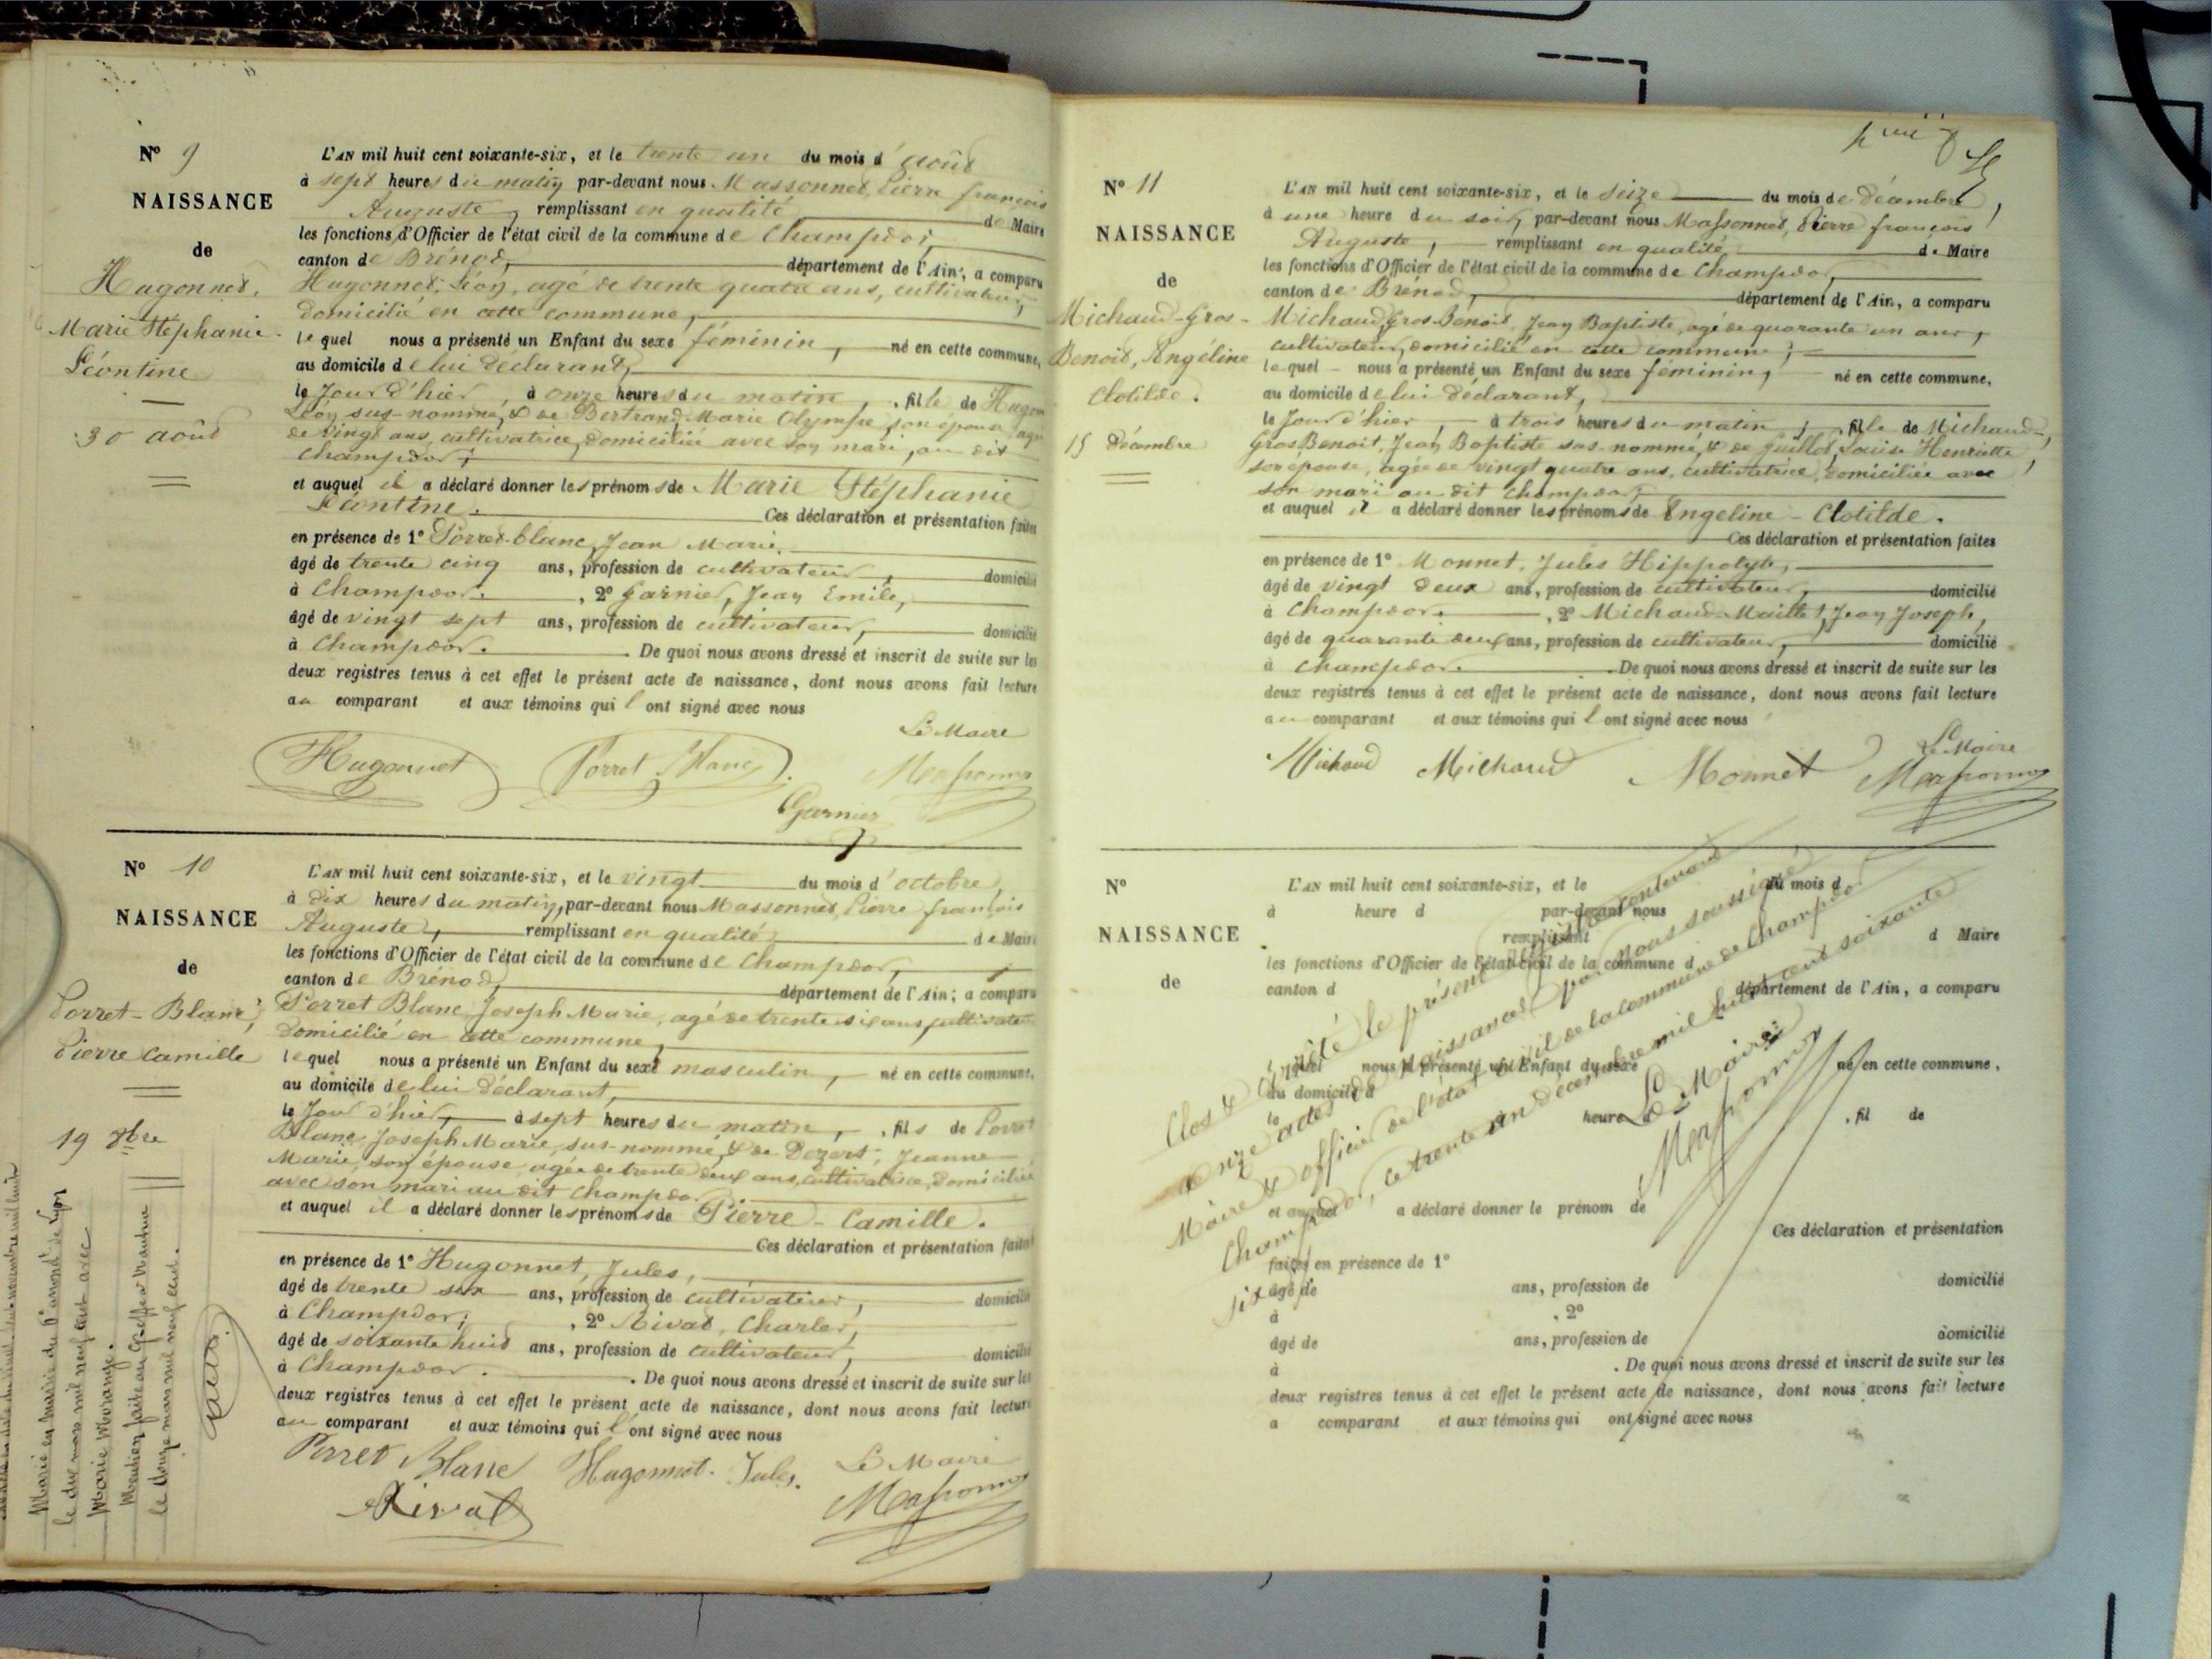 N° 9
NAISSANCE
de
Hugonnet,
Marie Stéphanie
Léontine
30 août
L'AN mil huit cent soixante-six, et le trente un du mois d'août
à sept heures du matin par-devant nous Massonnet, Pierre françois
Auguste, remplissant en qualité de Maire
les fonctions d'Officier de l'état civil de la commune de Champdor,
canton de Brénod, département de l'Ain, a comparu
Hugonnet, Léon, agé de trente quatre ans, cultivateur,
domicilié en cette commune,
lequel nous a présenté un Enfant du sexe féminin, né en cette commune,
au domicile de lui déclarant,
le Jour d'hier, à onze heures du matin, fille de Hugon
Léon sus-nommé, & de Bertrand, Marie Olympe son épouse agée
de vingt ans, cultivatrice, domiciliée avec son mari, au dit
Champdor;
et auquel il a déclaré donner les prénoms de Marie Stéphanie
Léontine. Ces déclaration et présentation faites
en présence de 1° Porret-blanc, Jean Marie,
âgé de trente cinq ans, profession de cultivateur, domicilié
à Champdor. , 2° Garnier, Jean Emile,
âgé de vingt sept ans, profession de cultivateur, domicilié
à Champdor. De quoi nous avons dressé et inscrit de suite sur les
deux registres tenus à cet effet le présent acte de naissance, dont nous avons fait lecture
au comparant et aux témoins qui l'ont signé avec nous
Le Maire
Hugonnet Porret Blanc Massonnet
Garnier
N° 10
NAISSANCE
de
Porret-Blanc,
Pierre Camille
19 8bre
Marié en mairie du 6e arrond. de Lyon
le dix mars mil neuf cent avec
Marie
Mention faite au Greffe
le douze mars mil neuf cent.
L'AN mil huit cent soixante-six, et le vingt du mois d'octobre,
à dix heures du matin, par-devant nous Massonnet, Pierre françois
Auguste, remplissant en qualité de Maire
les fonctions d'Officier de l'état civil de la commune de Champdor,
canton de Brénod, département de l'Ain; a comparu
Porret Blanc, Joseph Marie, agé de trente six ans, cultivateur
domicilié en cette commune,
lequel nous a présenté un Enfant du sexe masculin, né en cette commune,
au domicile de lui déclarant,
le Jour d'hier, à sept heures du matin, fils de Porret
Blanc, Joseph Marie, sus-nommé, & de Dezert, Jeanne
Marie, son épouse, agée de trente deux ans, cultivatrice, domiciliée
avec son mari au dit Champdor.
et auquel il a déclaré donner les prénoms de Pierre - Camille.
Ces déclaration et présentation faites
en présence de 1° Hugonnet, Jules,
âgé de trente six ans, profession de cultivateur, domicilié
à Champdor; , 2° Rivat, Charles,
âgé de soixante huit ans, profession de cultivateur, domicilié
à Champdor. De quoi nous avons dressé et inscrit de suite sur les
deux registres tenus à cet effet le présent acte de naissance, dont nous avons fait lecture
au comparant et aux témoins qui l'ont signé avec nous
Porret Blanc Hugonnet Jules. Le Maire
Rivat Massonnet
N° 11
NAISSANCE
de
Michaud-Gros-
Benoit, Angéline
Clotilde.
15 Décembre
L'AN mil huit cent soixante-six, et le seize du mois de décembre,
à une heure du soir, par-devant nous Massonnet, Pierre françois
Auguste, remplissant en qualité de Maire
les fonctions d'Officier de l'état civil de la commune de Champdor,
canton de Brénod, département de l'Ain, a comparu
Michaud Gros-Benoit, Jean Baptiste, agé de quarante un ans,
cultivateur, domicilié en cette commune;
lequel nous a présenté un Enfant du sexe féminin, né en cette commune,
au domicile de lui déclarant,
le Jour d'hier, à trois heures du matin, fille de Michaud-
Gros Benoit, Jean Baptiste sus-nommé, & de Guillot, Louise Henriette
son épouse, agée de vingt quatre ans, cultivatrice, domiciliée avec
son mari au dit Champdor;
et auquel il a déclaré donner les prénoms de Engeline - Clotilde.
Ces déclaration et présentation faites
en présence de 1° Monnet, Jules Hippolyte,
âgé de vingt deux ans, profession de cultivateur, domicilié
à Champdor. , 2° Michaud-Maillet, Jean Joseph,
âgé de quarante deux ans, profession de cultivateur, domicilié
à Champdor. De quoi nous avons dressé et inscrit de suite sur les
deux registres tenus à cet effet le présent acte de naissance, dont nous avons fait lecture
au comparant et aux témoins qui l'ont signé avec nous
Le Maire
Michaud Michaud Monnet Massonnet
N°
NAISSANCE
de
L'AN mil huit cent soixante-six, et le du mois d
à heure d par-devant nous
remplissant d Maire
les fonctions d'Officier de l'état civil de la commune d
canton d département de l'Ain, a comparu
lequel nous a présenté un Enfant du sexe né en cette commune,
au domicile d
le heure d , fil de
et auquel a déclaré donner le prénom de
Ces déclaration et présentation
faites en présence de 1°
âgé de ans, profession de domicilié
à , 2°
âgé de ans, profession de domicilié
à . De quoi nous avons dressé et inscrit de suite sur les
deux registres tenus à cet effet le présent acte de naissance, dont nous avons fait lecture
a comparant et aux témoins qui ont signé avec nous
Clos & arrêté le présent registre contenant
onze actes de naissances par nous soussigné
Maire & officier de l'état civil de la commune de Champdor
Champdor, ce trente un décembre mil huit cent soixante
six
Le Maire
Massonnet